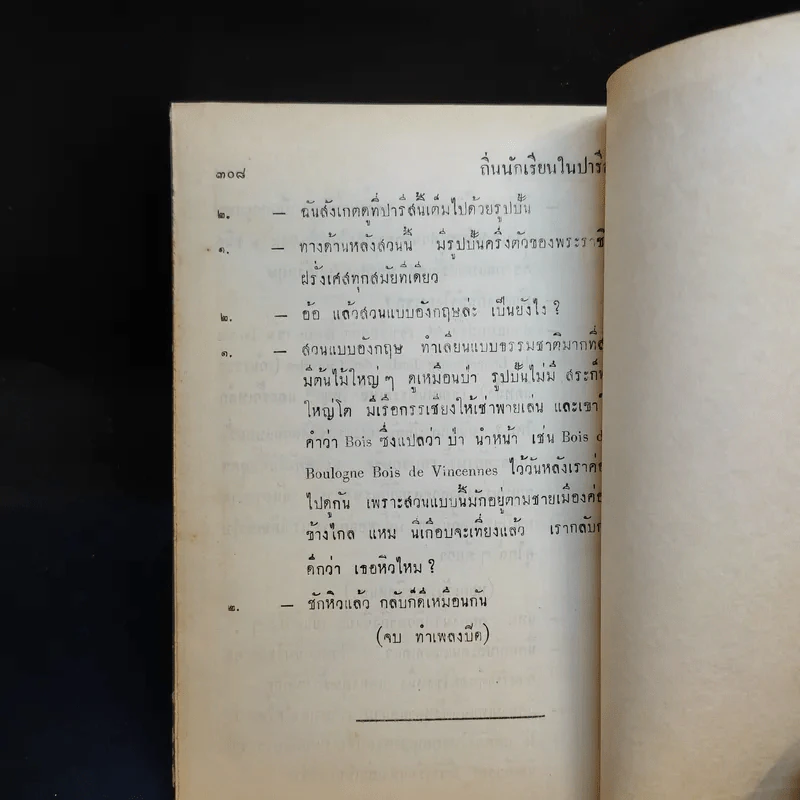 ๓๐๘ ถิ่นนักเรียนในปารีส
๒. — ฉันสังเกตดูที่ปารีสนี้เต็มไปด้วยรูปปั้น
๑. — ทางด้านหลังสวนนี้ มีรูปปั้นครึ่งตัวของพระราชิ
ฝรั่งเศสทุกสมัยทีเดียว
๒. — อ้อ แล้วสวนแบบอังกฤษล่ะ เป็นยังไง ?
๑. — สวนแบบอังกฤษ ทำเลียนแบบธรรมชาติมากที่ส
มีต้นไม้ใหญ่ ๆ ดูเหมือนป่า รูปปั้นไม่มี สระก็
ใหญ่โต มีเรือกรรเชียงให้เช่าพายเล่น และเขาใ
คำว่า Bois ซึ่งแปลว่า ป่า นำหน้า เช่น Bois d
Boulogne Bois de Vincennes ไว้วันหลังเราค่อ
ไปดูกัน เพราะสวนแบบนี้มักอยู่ตามชายเมืองค่อ
ข้างไกล แหม นี่เกือบจะเที่ยงแล้ว เรากลับก
ดีกว่า เธอหิวไหม ?
๒. — ชักหิวแล้ว กลับก็ดีเหมือนกัน
(จบ ทำเพลงปิด)